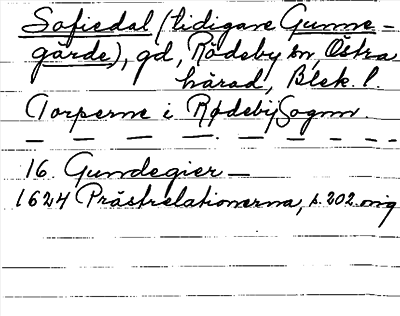 Sofiedal (tidigare Gunne-
gärde), gd, Rödeby sn, Östra
härad, Blek. l.
Torperne i Rødeby Sognn.
16. Gundegier —
1624 Prästrelationerna, s. 202. orig